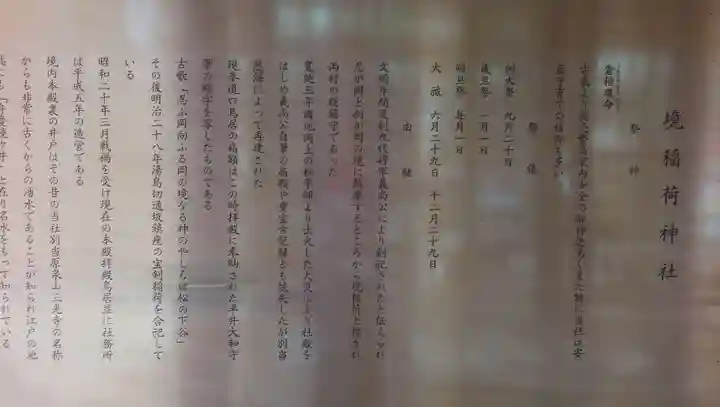 境稲荷神社
祭神
倉稲魂命
古来より
祭儀
例大祭 九月二十日
歳旦祭 一月一日
朔旦祭 毎月一日
大祓 六月二十九日 十二月二十九日
由緒
文明年間足利九代将軍義尚公により創祀されたと伝えられ
忍が岡と向が岡の境に鎮座するところから現称となされ
両村の鎮守であった
はじめ義尚公自筆の扁額や重宝古記録とも焼失したが別当
によって再建された
現参道口鳥居の扁額はこの時拝殿に奉納された平井大和守
筆の額字を写したものである
古歌「忍ぶ岡向ふる岡の境なる神のやしろは松の下谷」
その後明治二十八年湯島切通坂鎮座の宝剣稲荷を合祀して
いる
昭和二十年三月戦禍を受け現在の本殿拝殿鳥居並に社務所
は平成五年の造営である
境内本殿裏の井戸はその昔の当社別当原泉山三光寺の名称
からも非常に古くからの湧水であることが知られ江戸の地
誌にも「弁慶鏡ヶ井」と在り名水をもって知られている